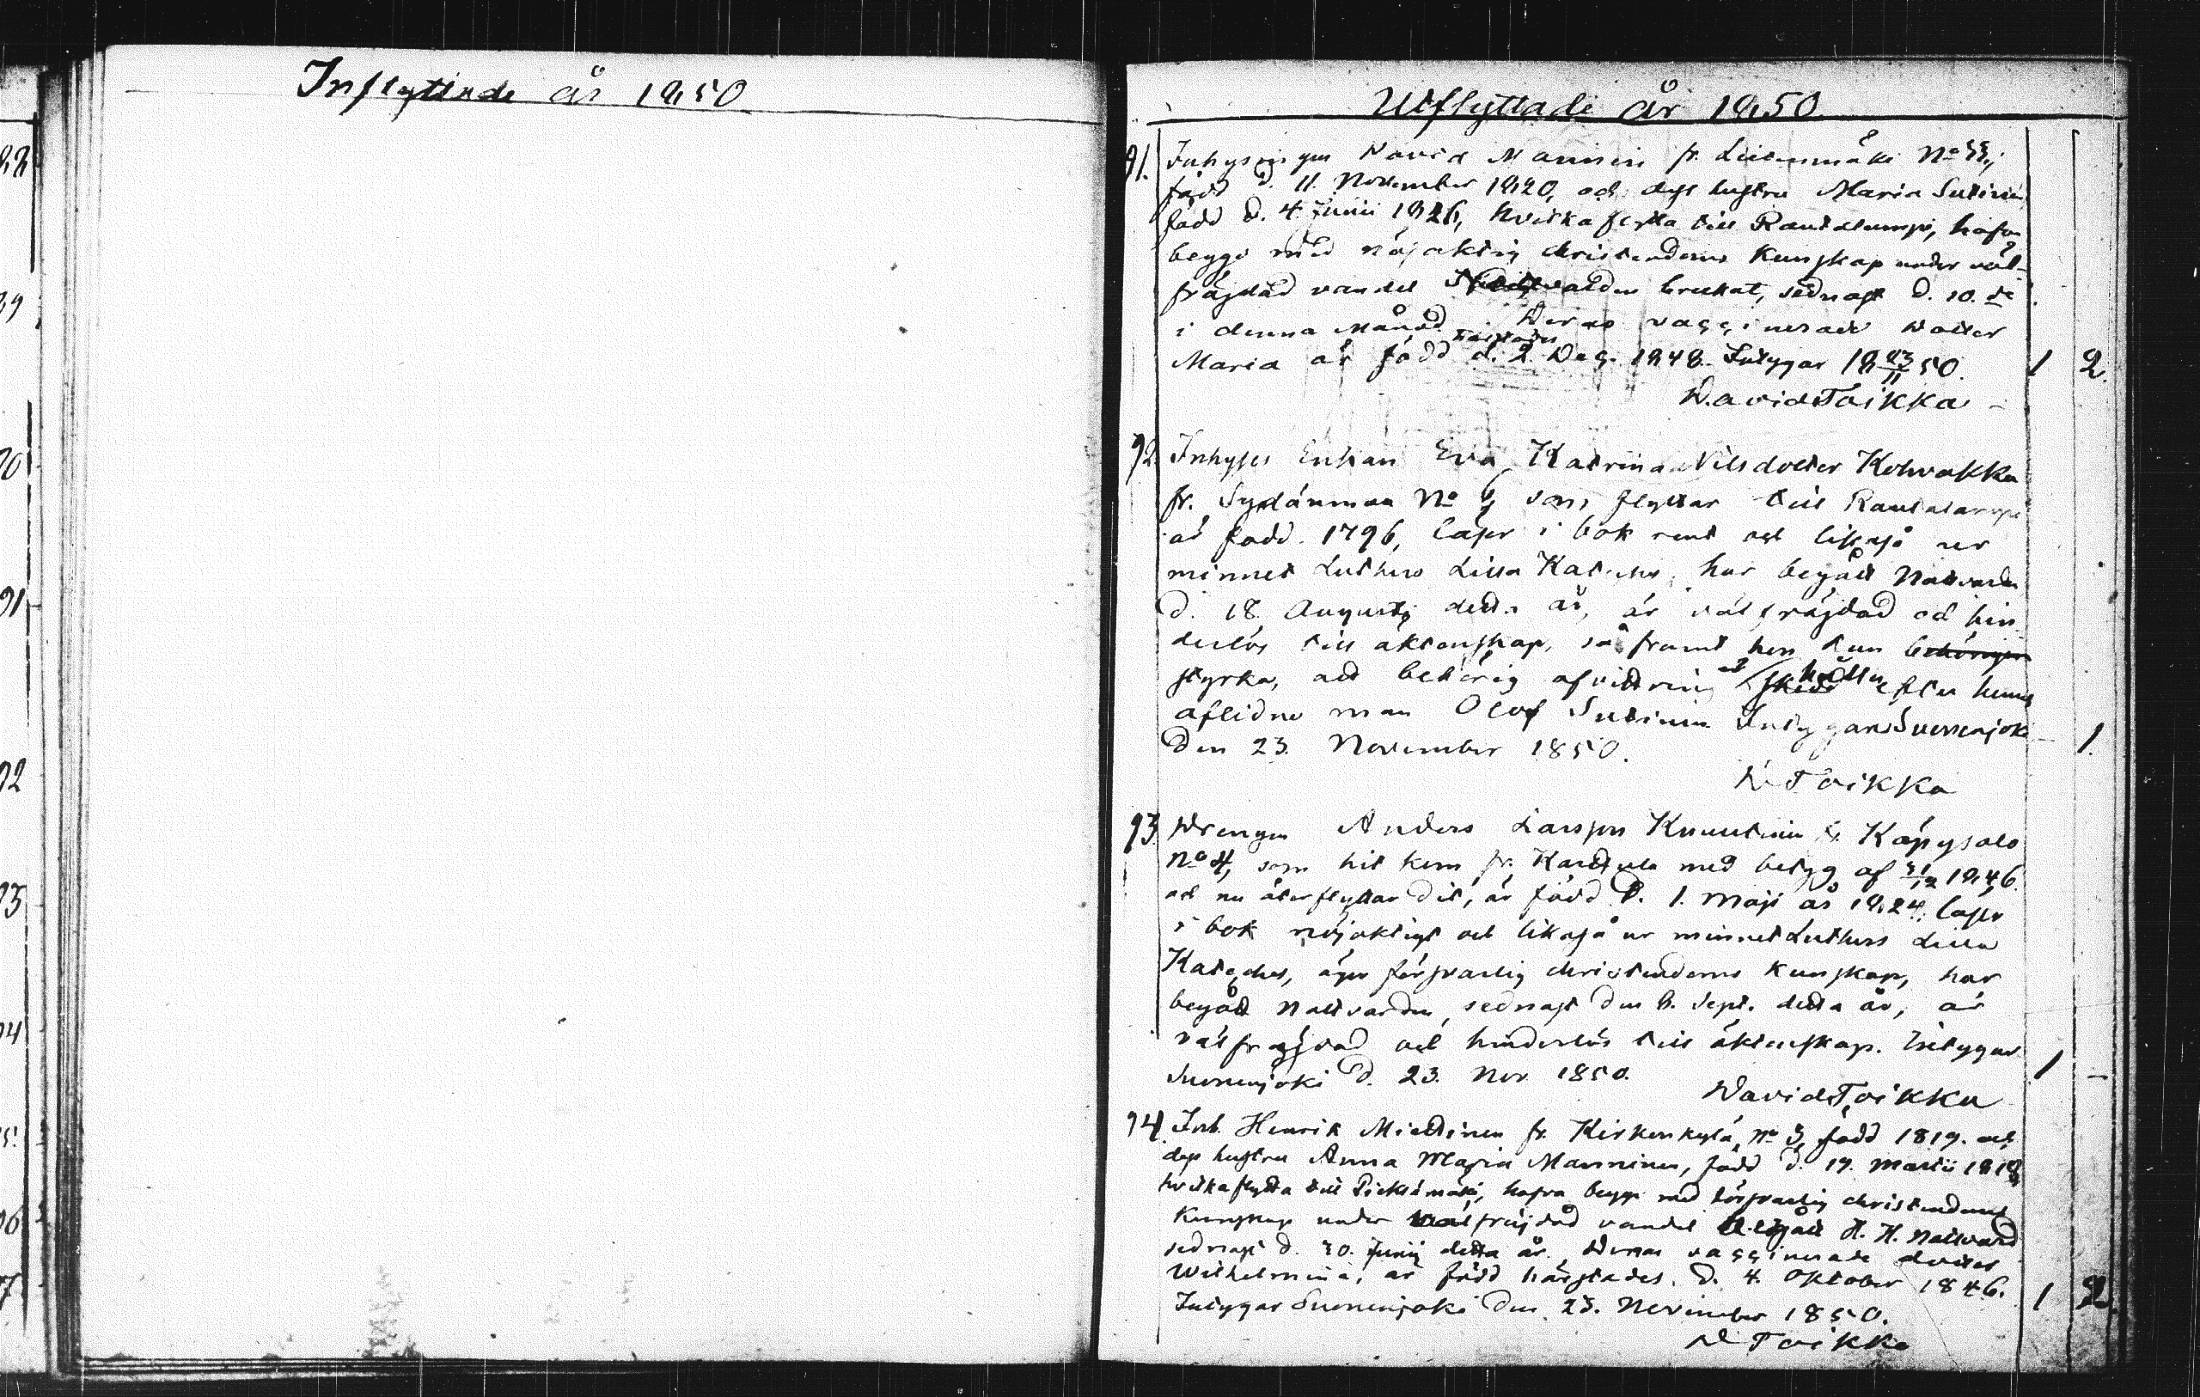 Inflyttade år 1850
88
89
90
91
92
93
94
95
96
97
Utflyttade år 1850
91. Inhysingen David Manninen fr. Liedenmäki No 33,
född d. 11. November 1820, och dess hustru Maria Sutinen,
född d. 4 Junii 1826, hvilka flytta till Rautalampi, hafva
begge med nöjaktig christendoms kunskap under väl-
frägdad vandel Nattvarden brukat, sednast d. 10. de
i denna Månad. Deras vaccinerade dotter
Maria är född härstädes d. 2 Dec. 1848. Intygar 18 23/11 50. 1 2.
David Toikka
92. Inhyses Enkan Eva Katrina Nilsdotter Kohvakka
fr. Sydänmaa No 6, som flyttar till Rautalampi
är född 1796, läser i bok rent och likaså ur
minnet Luthers Lilla Kateches, har begått Nattvarden
d. 18 Augusti detta år, är välfrägdad och hin-
derlös till äktenskap, så framt hon kan
styrka, att behörig afvittring är hållen efter hennes
aflidne man Olof Sutinen Intygar Suonenjoki
den 23. November 1850. 1.
D Toikka
93. Drengen Anders Larsson Knuutinen fr. Käpysalo
No 4, som hit kom fr. Karttula med betyg af 31/12 1846.
och nu återflyttar dit, är född d. 1. Maji år 1824, läser
i bok nöjaktigt och likaså ur minnet Luthers Lilla
Kateches, äger försvarlig christendoms kunskap, har
begått Nattvarden, sednast den 8. Sept. detta år, är
välfrägdad och hinderlös till äktenskap. Intygar
Suonenjoki d. 23. Nov. 1850. 1 –
David Toikka
94. Inh. Henrik Miettinen fr. Kirkonkylä No 3, född 1819. och
dess hustru Anna Maria Manninen, född d. 19. Martii 1818,
hvilka flytta till Pieksämäki, hafva begge med försvarlig christendoms
kunskap under välfrägdad vandel begått H. H. Nattvard
sednast d. 30. Junii detta år. Deras vaccinerade dotter
Wilhelmina, är född härstädes d. 4 Oktober 1846.
Intygar Suonenjoki den 23. November 1850. 1 2.
D Toikka